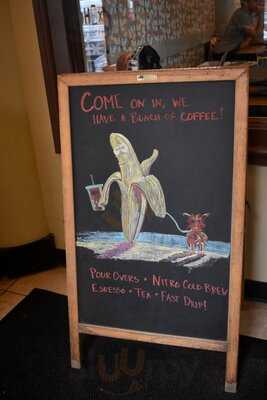 COME ON IN, WE
HAVE A BUNCH OF COFFEE!
POUR OVERS • NITRO COLD BREW
ESPRESSO • TEA • FAST DRIP!